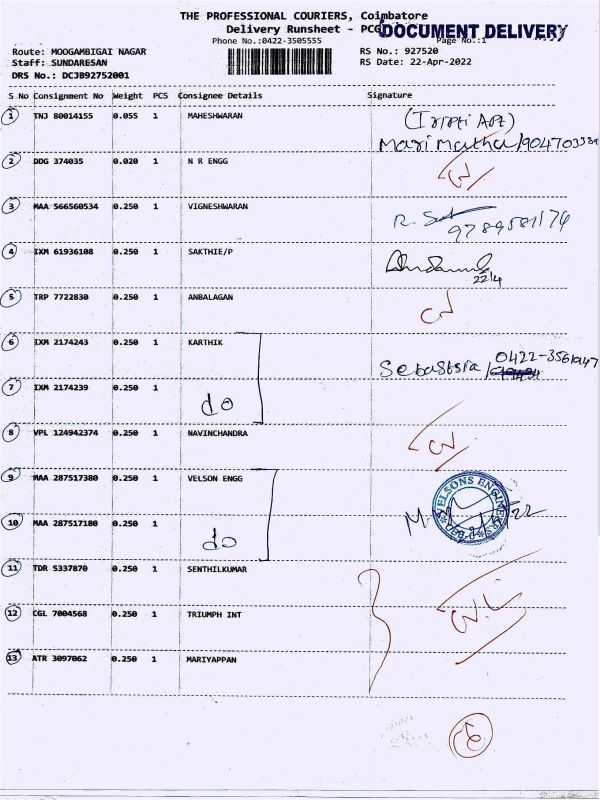 THE PROFESSIONAL COURIERS, Coimbatore
Delivery Runsheet - PCG
DOCUMENT DELIVERY
Phone No.:0422-3505555
Page No.:1
Route: MOOGAMBIGAI NAGAR
RS No.: 927520
Staff: SUNDARESAN
RS Date: 22-Apr-2022
DRS No.: DCJB92752001
S No Consignment No Weight PCS Consignee Details Signature
1 TNJ 80014155 0.055 1 MAHESHWARAN
2 DDG 374035 0.020 1 N R ENGG
3 MAA 566560534 0.250 1 VIGNESHWARAN 9789581174
4 IXM 61936108 0.250 1 SAKTHIE/P 22/4
5 TRP 7722830 0.250 1 ANBALAGAN
6 IXM 2174243 0.250 1 KARTHIK
7 IXM 2174239 0.250 1 do
8 VPL 124942374 0.250 1 NAVINCHANDRA
9 MAA 287517380 0.250 1 VELSON ENGG
10 MAA 287517180 0.250 1 do
11 TDR 5337870 0.250 1 SENTHILKUMAR
12 CGL 7004568 0.250 1 TRIUMPH INT
13 ATR 3097062 0.250 1 MARIYAPPAN